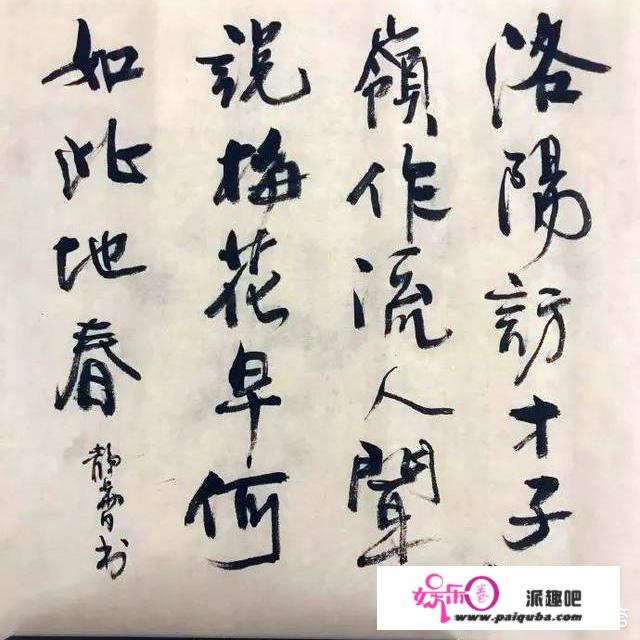 洛陽訪才子
嶺作流人聞
說梅花早何
如此地春
书
娱乐圈 派趣吧
www.paiquba.com